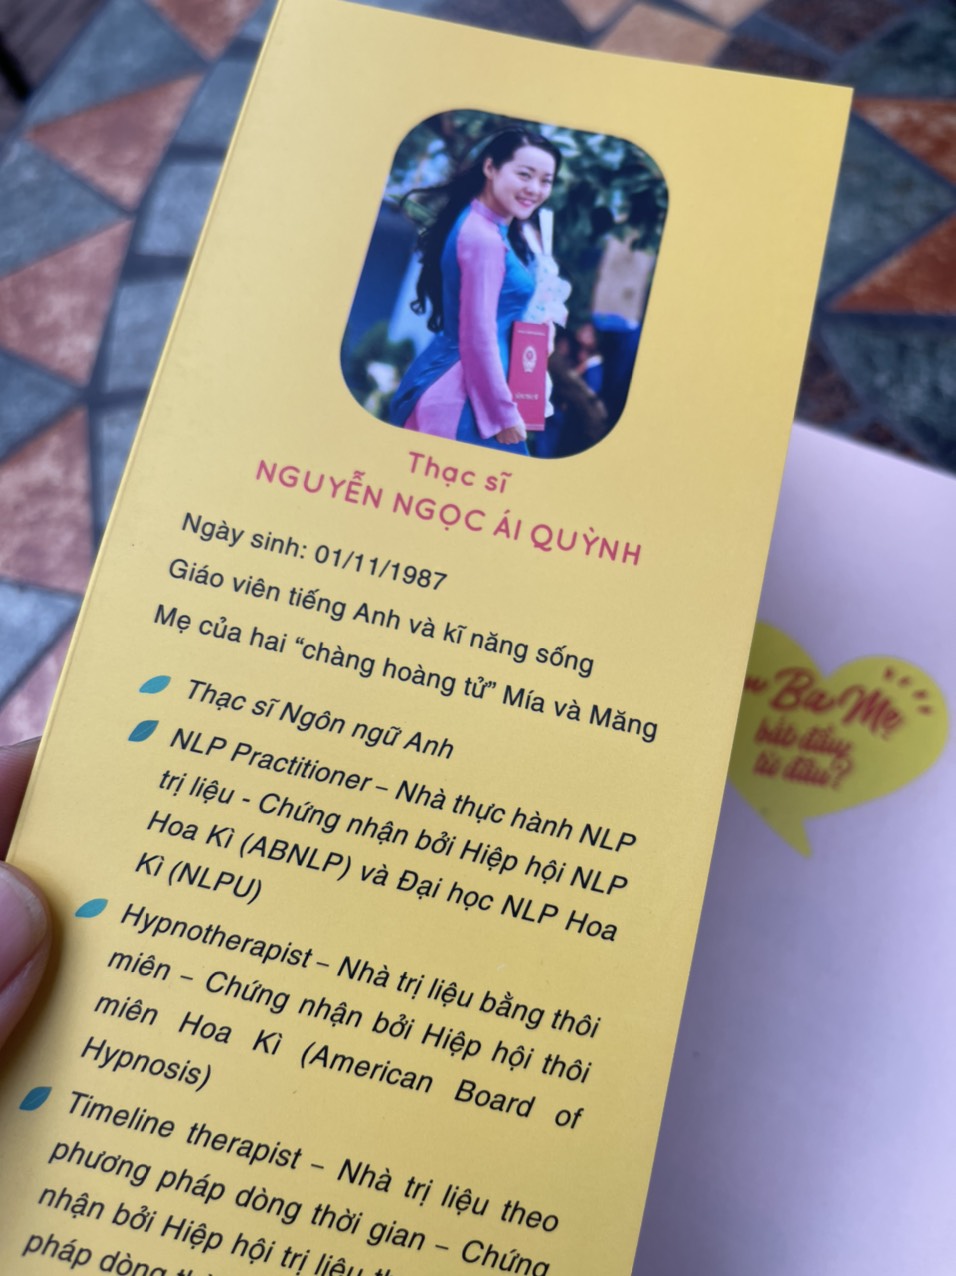 Thạc sĩ
NGUYỄN NGỌC ÁI QUỲNH
Ngày sinh: 01/11/1987
Giáo viên tiếng Anh và kĩ năng sống
Mẹ của hai “chàng hoàng tử” Mía và Măng
Thạc sĩ Ngôn ngữ Anh
NLP Practitioner – Nhà thực hành NLP
trị liệu - Chứng nhận bởi Hiệp hội NLP
Hoa Kì (ABNLP) và Đại học NLP Hoa
Kì (NLPU)
Hypnotherapist – Nhà trị liệu bằng thôi
miên – Chứng nhận bởi Hiệp hội thôi
miên Hoa Kì (American Board of
Hypnosis)
Timeline therapist – Nhà trị liệu theo
phương pháp dòng thời gian – Chứng
nhận bởi Hiệp hội trị liệu
pháp dòng
Ba Mẹ
bắt đầu
từ đâu?